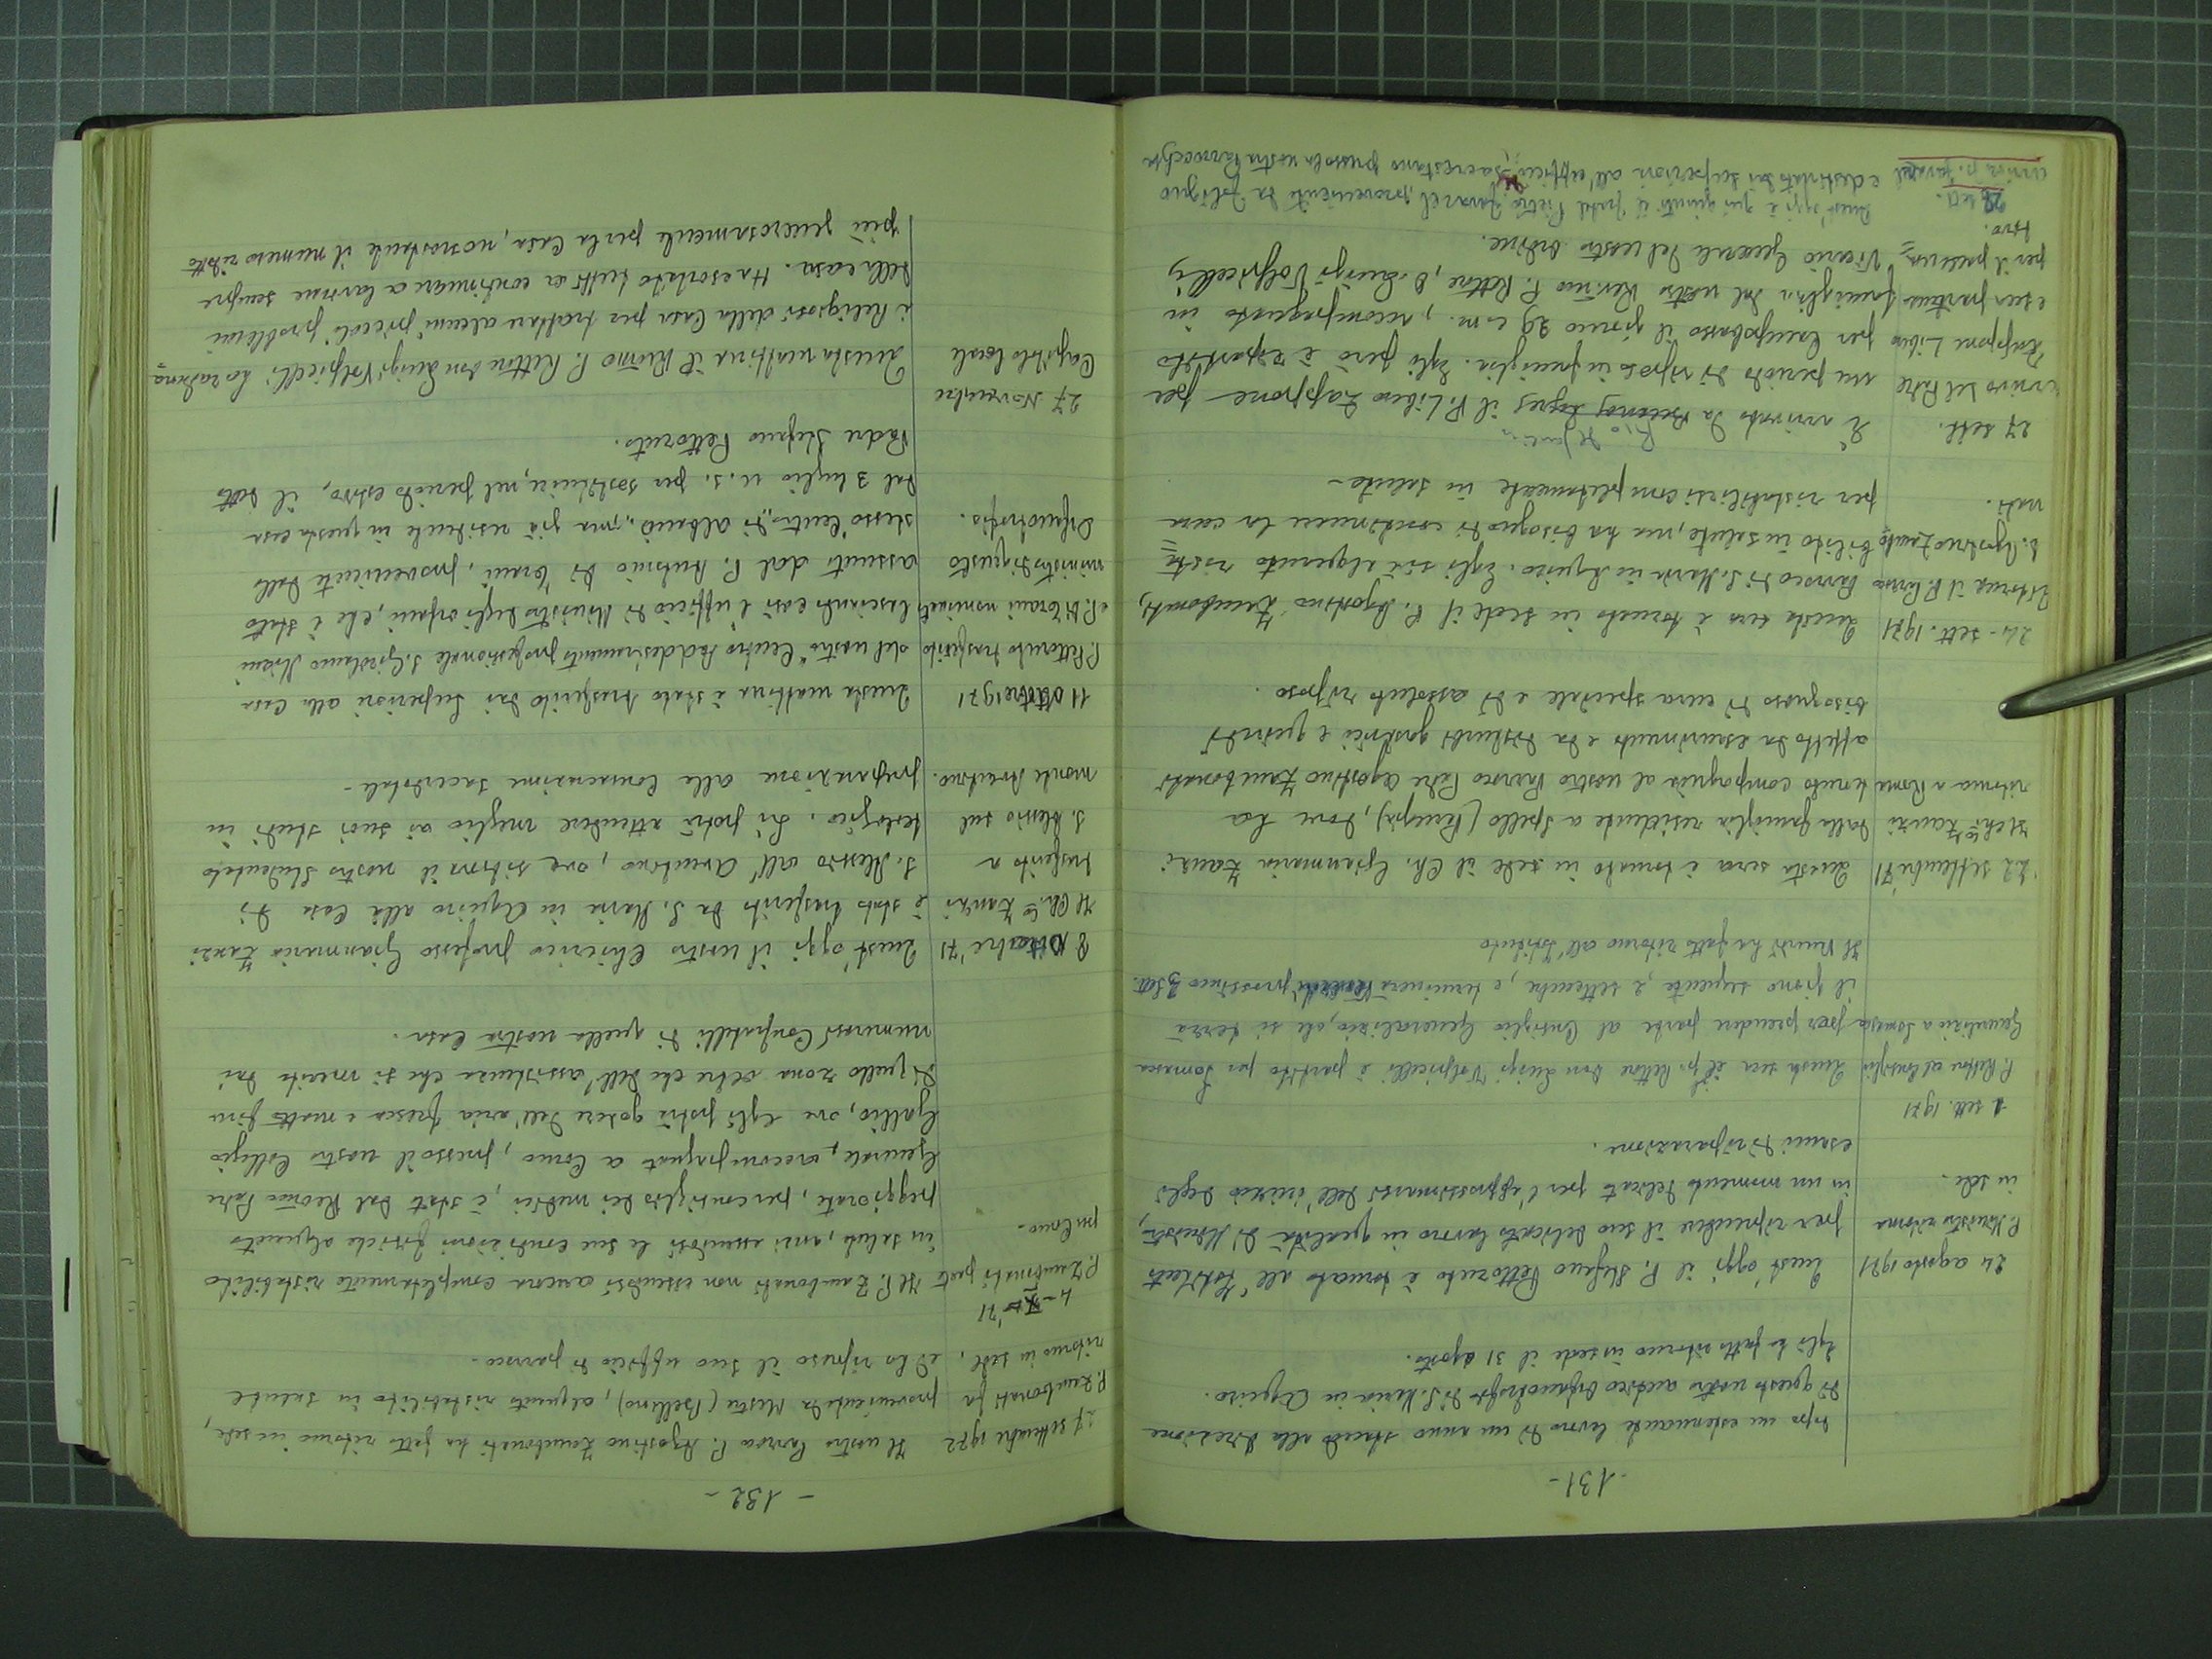 -131-
dopo un estenuante lavoro di un anno attorno alla direzione
di questo nostro antico Orfanotrofio di S. Maria in Aquiro.
Egli ha fatto ritorno in sede il 31 agosto.
24 agosto 1971
P. Ministro ritorna
in sede.
Quest'oggi il P. Stefano Pettoruto è tornato all'Istituto
per riprendere il suo delicato lavoro in qualità di Ministro,
in un momento delicato per l'approssimarsi dell'inizio degli
esami di riparazione.
1 sett. 1971
P. Rettore al Consiglio
Generalizio a Somasca
Questa sera il p. Rettore Don Luigi Volpicelli è partito per Somasca
per prendere parte al Consiglio Generalizio, che si terrà
il giorno seguente, 2 settembre, e terminerà Venerdì prossimo 3 sett.
Il Venerdì ha fatto ritorno all'Istituto
22 settembre '71
Il Ch.co Zanzi
ritorna a Roma
Questa sera è tornato in sede il Ch. Gianmaria Zanzi
dalla famiglia residente a Spello (Perugia), dove ha
tenuto compagnia al nostro Parroco Padre Agostino Zambonati
affetto da esaurimento e da disturbi gastrici e quindi
bisognoso di cura speciale e di assoluto riposo.
24 - sett. 1971
Ritorna il P. Parroco
D. Agostino Zambo
nati.
Questa sera è tornato in sede il P. Agostino Zambonati,
Parroco di S. Maria in Aquiro. Egli si è alquanto rista=
bilito in salute, ma ha bisogno di continuare la cura
per ristabilirsi completamente in salute-
27 sett.
arrivo del Padre
Zappone Libero
e sua partenza
per il paese na=
tivo.
Rio de Janeiro
È arrivato da il P. Libero Zappone per
un periodo di riposo in famiglia. Egli però è ripartito
per Campobasso il giorno 29 c.m., accompagnato in
famiglia dal nostro Rev.mo P. Rettore, D. Luigi Volpicelli,
Vicario Generale del nostro Ordine.
28 sett.
arrivo p. Favaret
Quest'oggi è qui giunto il fratel Pietro Favaret, proveniente da Foligno
e destinato dai superiori all'ufficio sacrestano presso la nostra Parrocchia
- 132 -
27 settembre 1972
P. Zambonati fa
ritorno in sede,
Il nostro Parroco P. Agostino Zambonati ha fatto ritorno in sede,
proveniente da Mestre (Belluno), alquanto ristabilito in salute
ed ha ripreso il suo ufficio di parroco.
4 - X - '71
P. Zambonati parte
per Como.
Il P. Zambonati non essendosi ancora completamente ristabilito
in salute, anzi essendosi le sue condizioni fisiche alquanto
peggiorate, per consiglio dei medici, è stato dal Rev.mo Padre
Generale, accompagnato a Como, presso il nostro Collegio
Gallio, ove egli potrà godere dell'aria fresca e molto fina
di quella zona oltre che dell'assistenza che si merita dai
numerosi Confratelli di quella nostra Casa.
8 Ottobre '71
Il Ch.co Zanzi
trasferito a
S. Alessio sul
monte Aventino.
Quest'oggi il nostro Chierico professo Gianmaria Zanzi
è stato trasferito da S. Maria in Aquiro alla Casa di
S. Alessio all'Aventino, ove si trova il nostro Studentato
teologico. Lì potrà attendere meglio ai suoi studi in
preparazione alla Consacrazione sacerdotale-
11 ottobre 1971
P. Pettoruto trasferito
e P. Di Viani nominato
ministro di questo
Orfanotrofio.
Questa mattina è stato trasferito dai Superiori alla Casa
del nostro "Centro Addestramento professionale S. Girolamo Miani
lasciando così l'ufficio di Ministro degli orfani, che è stato
assunto dal P. Antonio Di, proveniente dallo
stesso "Centro" di Albano, ma già residente in questa casa
dal 3 luglio u.s. per sostituire, nel periodo estivo, il detto
Padre Stefano Pettoruto.
27 Novembre
Capitolo locale
Questa mattina il Rev.mo P. Rettore Don Luigi Volpicelli ha radunato
i Religiosi della Casa per trattare alcuni piccoli problemi
della casa. Ha esortato tutti a continuare a lavorare sempre
più generosamente per la Casa, nonostante il numero ridotto